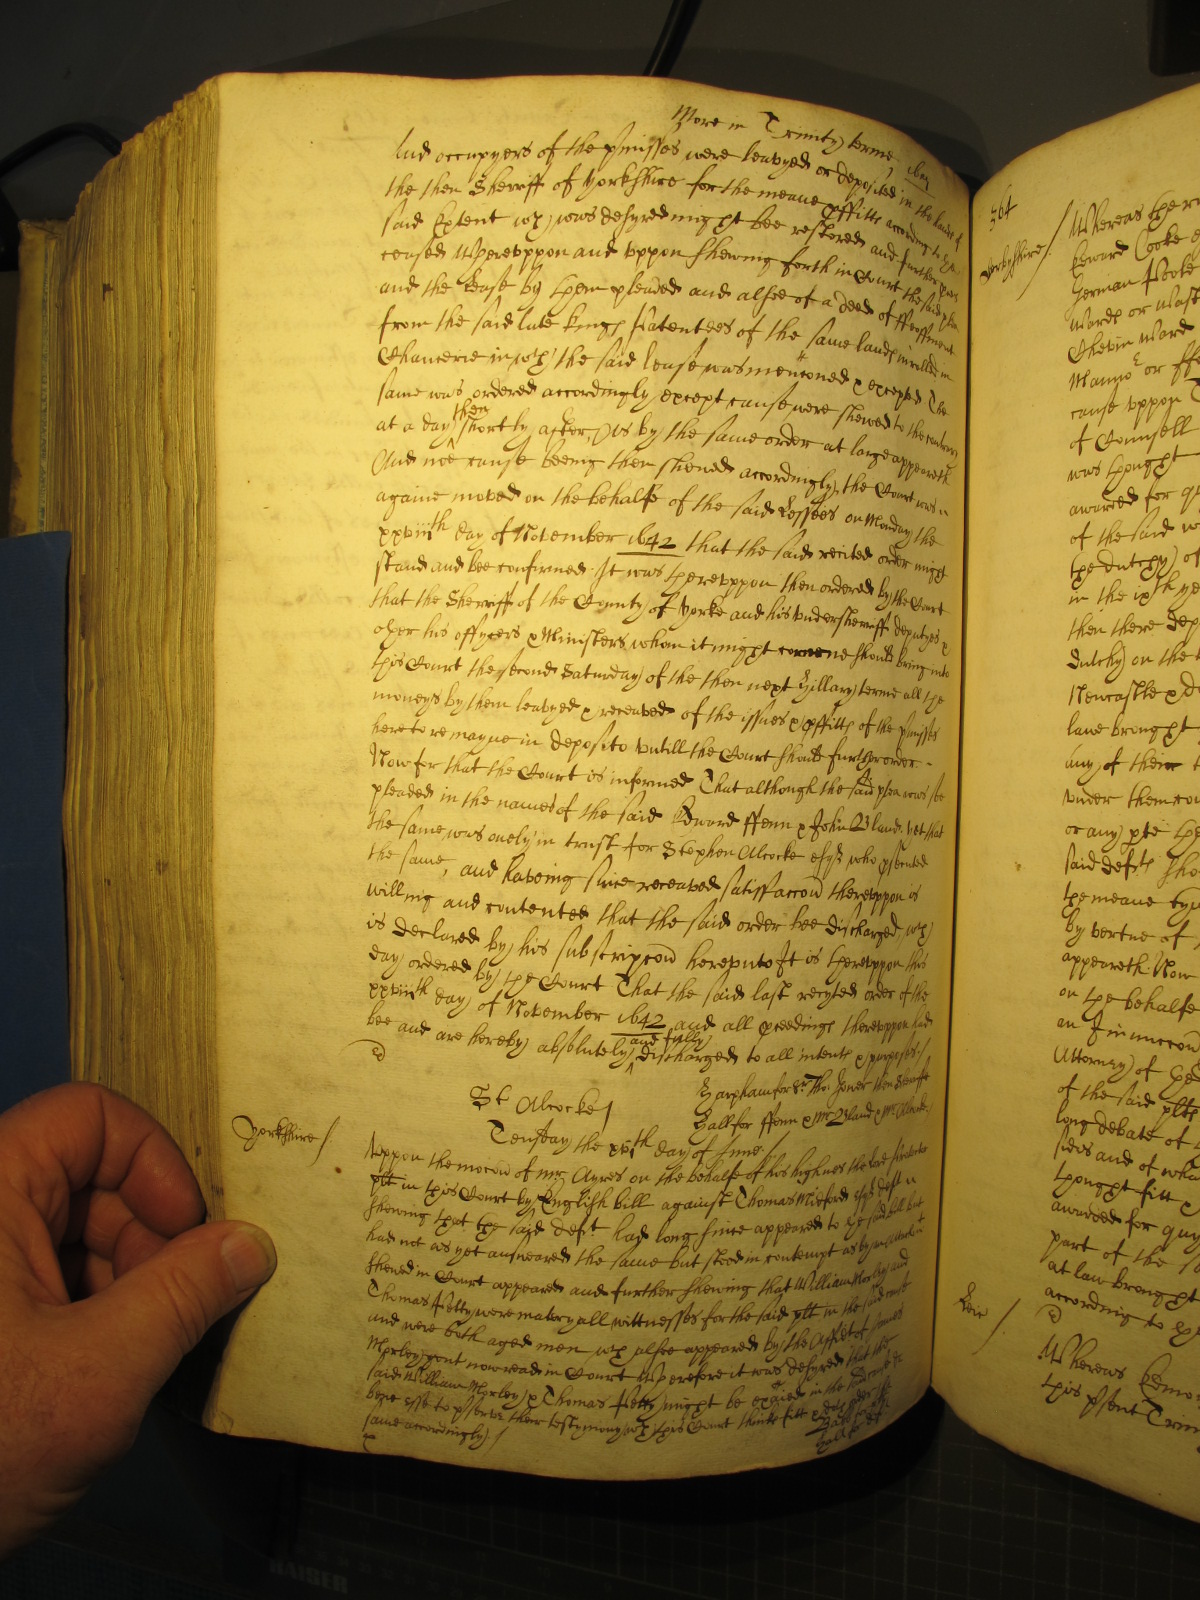 More in Trinity terme
and occupyers of the pmisses were leavyed or deposited in the hands of
the then Sheriff of Yorkshire for the meane pffitts according to the
said Extent wch was desyred might bee restored and further pces
ceased Wherevppon and vppon shewing forth in Court the said plea
and the lease by them pleaded and alsoe of a deed of ffeoffment
from the said late kings Patentees of the same lands inrolled in
Chancerie in wch the said lease was menconed & excepted The
same was ordered accordingly except cause were shewed to the contrary
at a day then shortly after, As by the same order at large appeareth
And noe cause beeing then shewed accordingly, the Court was
againe moved on the behalfe of the said Lessees on Monday the
xxviiith day of November 1642 that the said recited order might
stand and bee confirmed. It was therevppon then ordered by the Court
that the Sherriff of the County of Yorke and his vndersherriff deputyes &
other his offycers & Ministers whom it might concerne should bring into
this Court the second Saturday of the then next Hillary terme all the
moneys by them leavyed & receaved of the issues & pffitts of the pmisses
here to remayne in deposito vntill the Court should further order.
Now for that the Court is informed That although the said plea was soe
pleaded in the names of the said Edward ffenn & John Bland. yet that
the same was onely in trust for Stephen Alcocke esqr who psecuted
the same, and haveing since receaved satisfaccon therevppon is
willing and contented that the said order bee discharged, wch
is declared by his subscripcon herevnto It is therevppon this
day ordered by the Court That the said last recyted order of the
xxviiith day of November 1642 and all pceedings therevppon had
bee and are hereby absolutely and fully discharged to all intents & purposes
St Alcocke
Clapham for Sr Tho: Jones then Sherriffe
Hall for ffenn & Mr Bland & Mr Alcocke
Tensday the xvith day of June
Yorkshire
Vppon the mocon of mr Ayres on the behalfe of his highnes the Lord Protector
plt in this Court by English bill against Thomas Mitford esqr deft
shewing that the said deft. had long since appeared to the said bill but
had not as yet answeared the same but stood in contempt as by
shewed in Court appeared and further shewing that William Morley and
Thomas Petty were materyall wittnesses for the said plt in the said cause
and were both aged men wch alsoe appeared by the Affidt of James
Morley gent now read in Court Wherefore it was desyred that the
said William Morley & Thomas Petty might be exaied in the
bene esse to pserve their testymony wch this Court thinks fitt & doth order the
same accordingly
364
Derbyshire
Whereas there
Edward Cooke
German Poole
wards or wast
Chevin ward
Mannor or
cause vppon
of Counsell
was thought
awarded for
of the said
the dutchy of
in the ixth ye
then there dep
dutchy on the
Newcastle &
lane brought
any of them
vnder them
or any pte the
said defts sho
the meane
by vertue of
appeareth. Now
on the behalfe
an Iniunccon
Attorney of
of the said plts
long debate of
sides and of what
thought fitt
awarded for
part of the
at law brought
according to
Whereas Edmo
this psent Trin